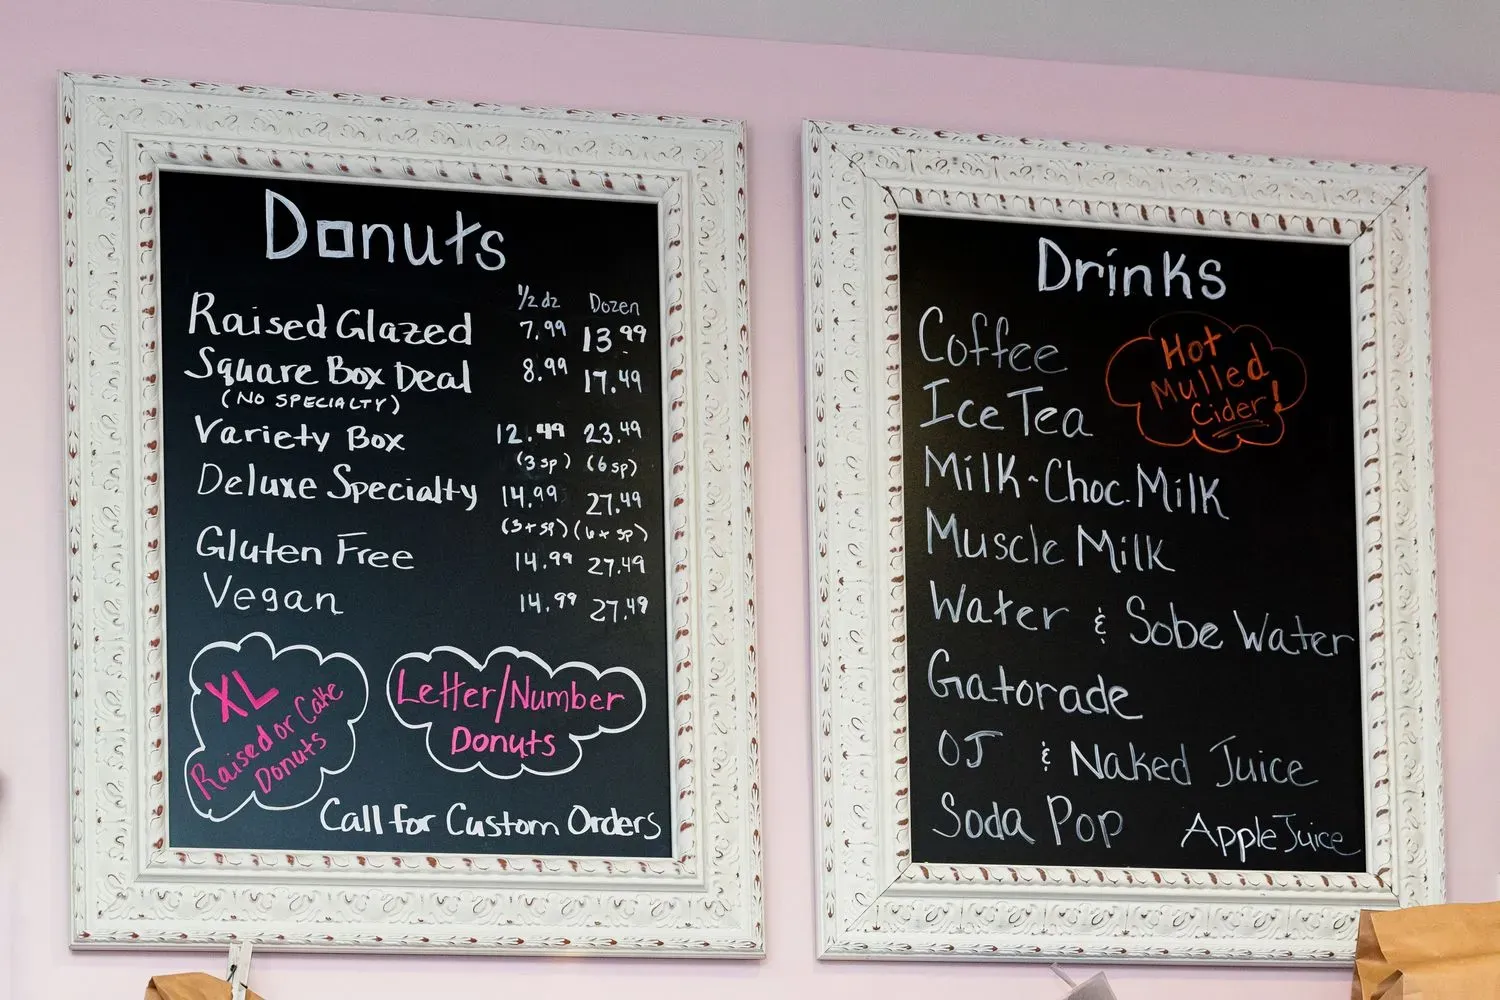 Donuts
1/2 dz Dozen
Raised Glazed 7.99 13.99
Square Box Deal 8.99 17.49
(NO SPECIALTY)
Variety Box 12.49 23.49
(3 sp) (6 sp)
Deluxe Specialty 14.99 27.49
(3+ sp) (6+ sp)
Gluten Free 14.99 27.49
Vegan 14.99 27.49
XL
Raised or Cake
Donuts
Letter/Number
Donuts
Call for Custom Orders
Drinks
Coffee
Ice Tea
Hot
Mulled
Cider!
Milk - Choc. Milk
Muscle Milk
Water & Sobe Water
Gatorade
OJ & Naked Juice
Soda Pop Apple Juice